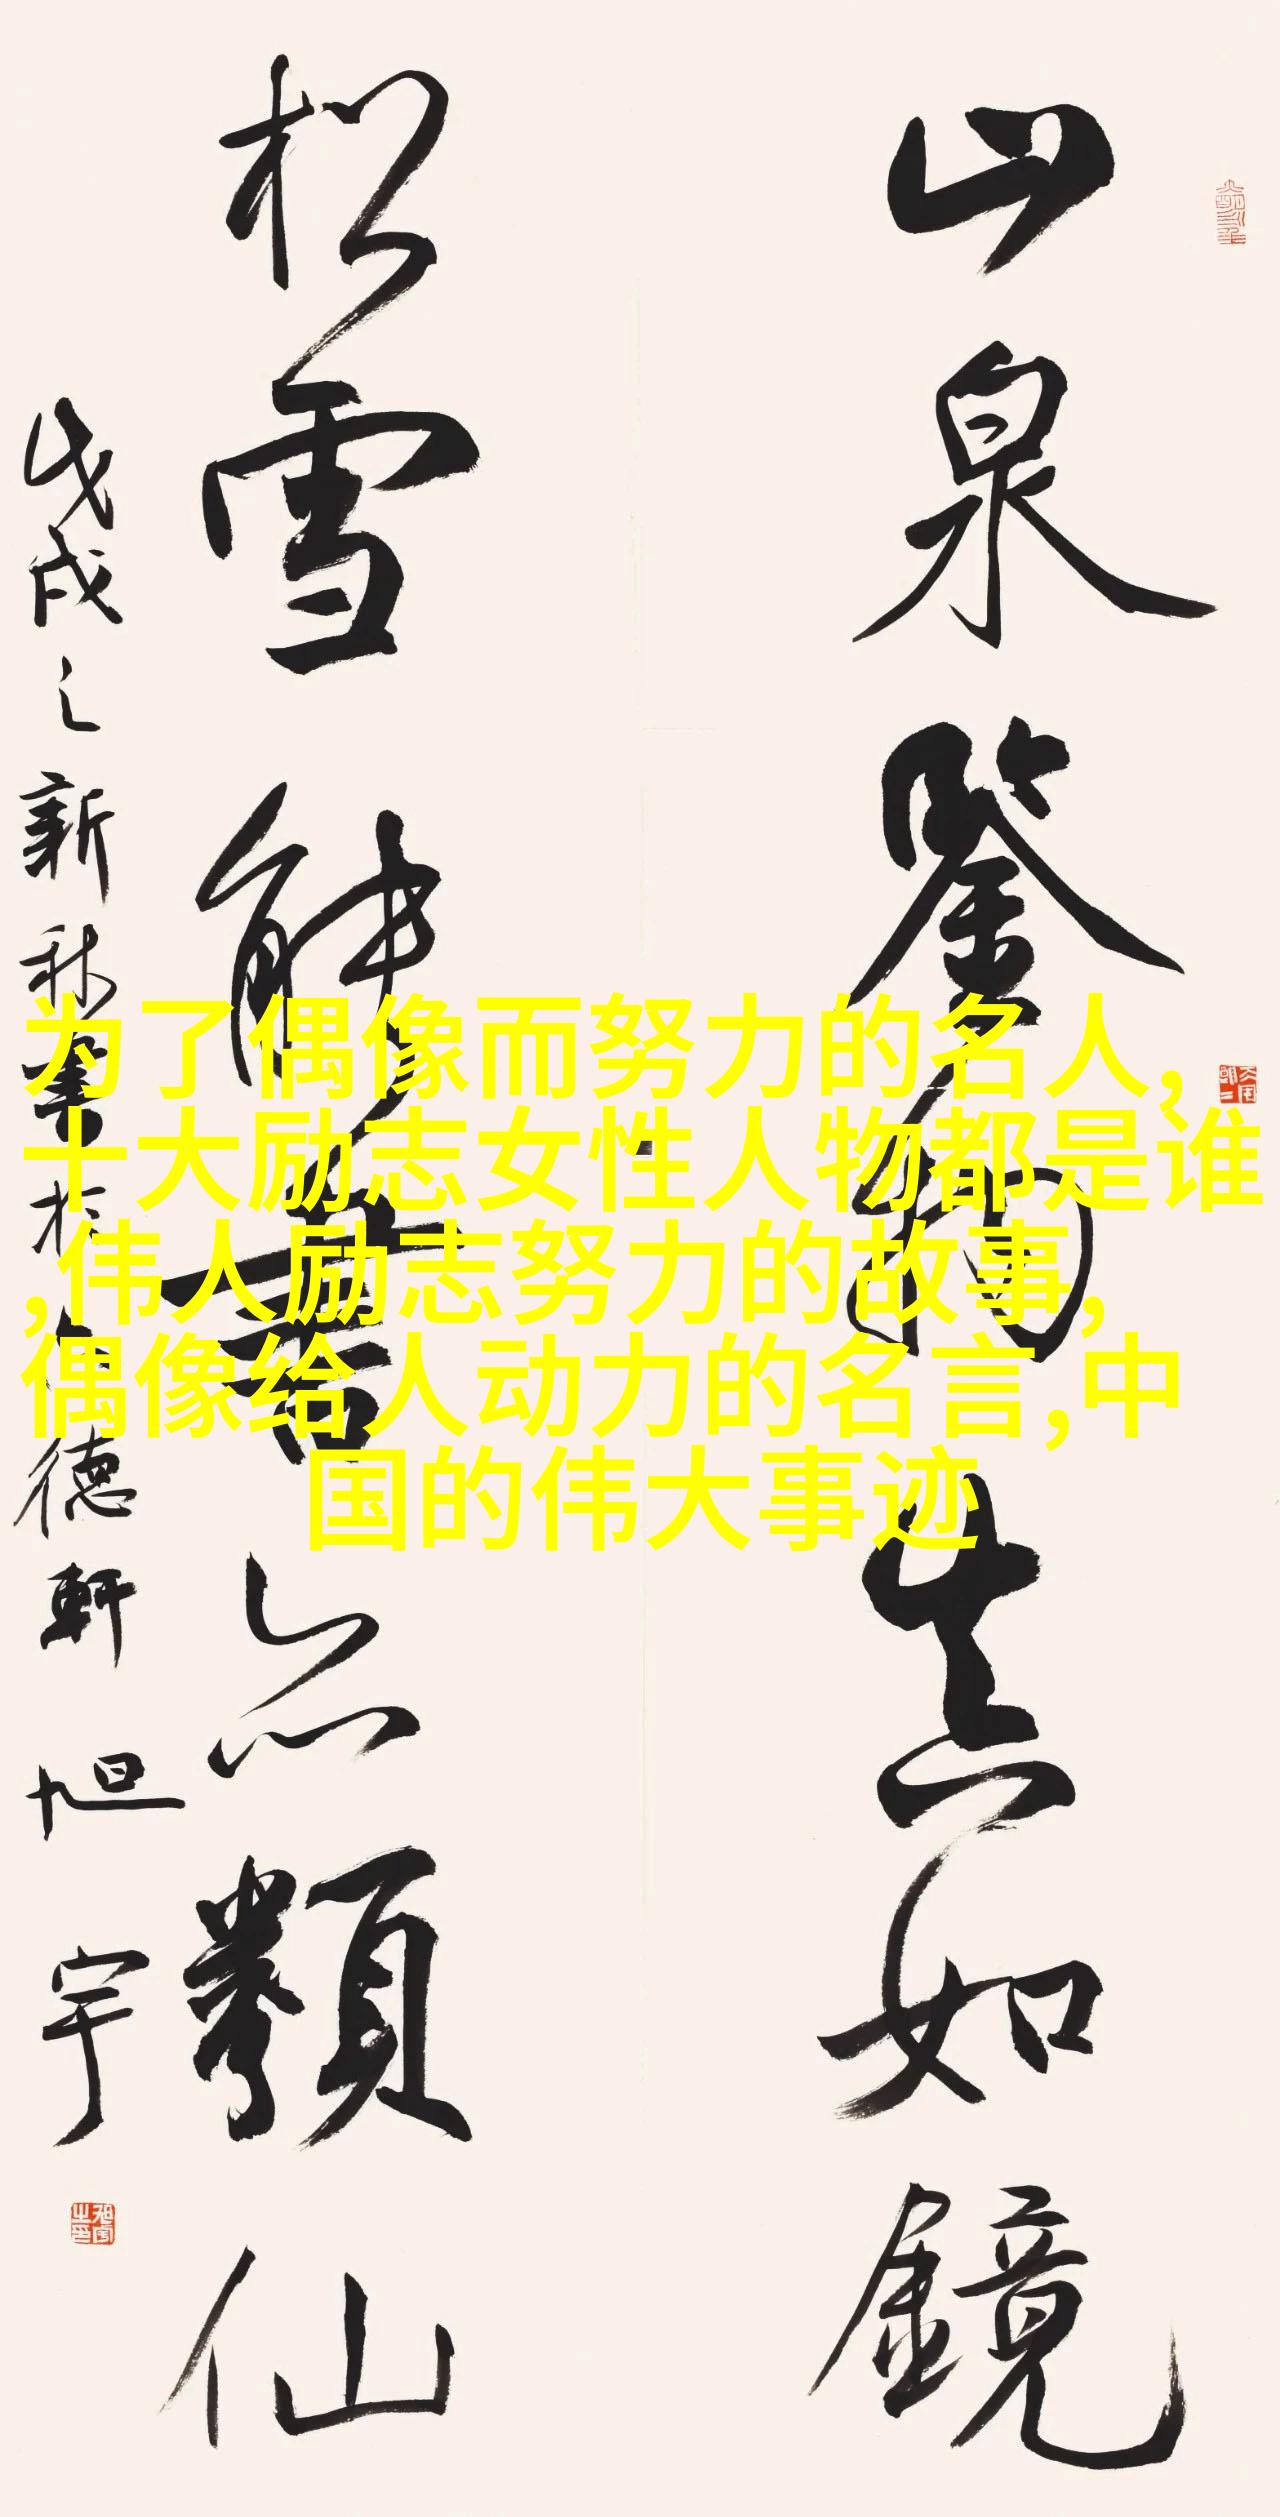 山泉鑒物真如鏡
松雪能書亦類仙
戊戌之新秋書於德軒旭宇
为了偶像而努力的名人,
十大励志女性人物都是谁
,伟人励志努力的故事,
偶像给人动力的名言,中
国的伟大事迹